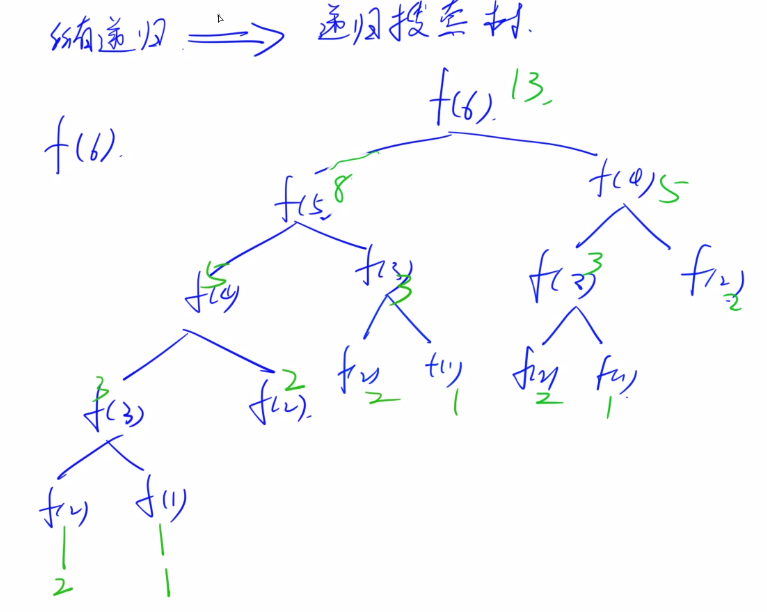 所有递归 ⟹ 递归搜索树.
f(6). 13.
f(6).
f(5) 8 f(4) 5
f(4) 5 f(3) 3 f(3) 3 f(2) 2
f(3) 3 f(2). 2 f(2) 2 f(1) 1 f(2) 2 f(1) 1
f(2) f(1)
2 1